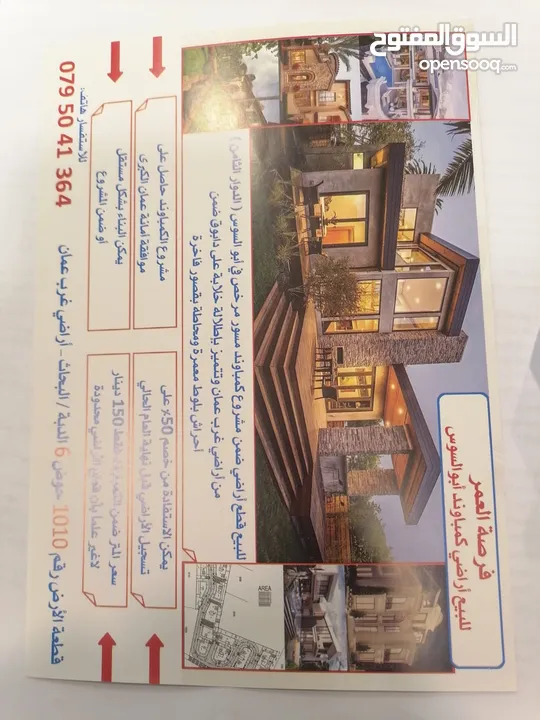 السوق المفتوح
opensooq.com
فرصة العمر
للبيع أراضي كمباوند أبو السوس
للبيع قطع أراضي ضمن مشروع كمباوند مسور مرخص في أبو السوس ( الدوار الثامن )
من أراضي غرب عمان وتتميز بإطلالة خلابة على دابوق ضمن
أحراش بلوط معمرة ومحاطة بقصور فاخرة
AREA
مشروع الكمباوند حاصل على
موافقة امانة عمان الكبرى
يمكن الاستفادة من خصم 50٪ على
تسجيل الأراضي قبل نهاية العام الحالي
يمكن البناء بشكل مستقل
او ضمن المشروع
سعر المتر ضمن فقط 150 دينار
لاغير علما بأن الأراضي محدودة
قطعة الأرض رقم 1010 حوض 6 الدبة / البحاث - أراضي غرب عمان
للاستفسار هاتف:
079 50 41 364